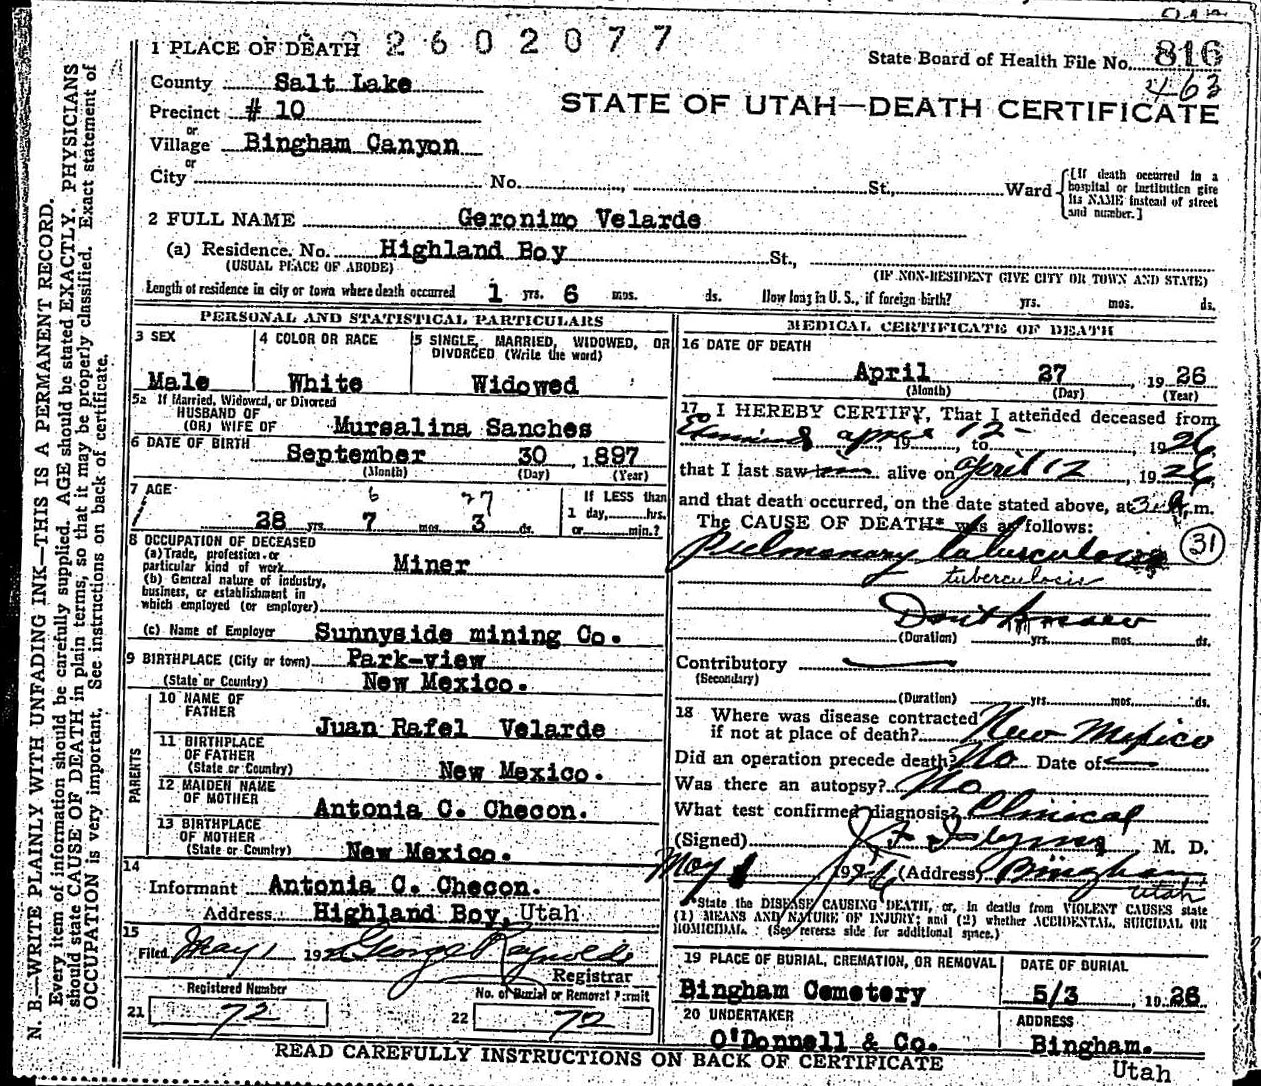 2602077
1 PLACE OF DEATH
State Board of Health File No. 816
463
County Salt Lake
STATE OF UTAH—DEATH CERTIFICATE
Precinct # 10
or
Village Bingham Canyon
or
City No. St., Ward
[If death occurred in a
hospital or institution give
its NAME instead of street
and number.]
2 FULL NAME Geronimo Velarde
(a) Residence. No. Highland Boy St.,
(USUAL PLACE OF ABODE) (IF NON-RESIDENT GIVE CITY OR TOWN AND STATE)
Length of residence in city or town where death occurred 1 yrs. 6 mos. ds. How long in U. S., if foreign birth? yrs. mos. ds.
PERSONAL AND STATISTICAL PARTICULARS
3 SEX 4 COLOR OR RACE 5 SINGLE, MARRIED, WIDOWED, OR
DIVORCED (Write the word)
Male White Widowed
5a If Married, Widowed, or Divorced
HUSBAND OF
(OR) WIFE OF Mursalina Sanches
6 DATE OF BIRTH September 30, 1897
(Month) (Day) (Year)
7 AGE 6 27 If LESS than
1 day, hrs.
28 yrs. 7 mos. 3 ds. or min.?
8 OCCUPATION OF DECEASED
(a) Trade, profession or
particular kind of work Miner
(b) General nature of industry,
business, or establishment in
which employed (or employer)
(c) Name of Employer Sunnyside mining Co.
9 BIRTHPLACE (City or town) Park-view
(State or Country) New Mexico.
PARENTS
10 NAME OF
FATHER
Juan Rafel Velarde
11 BIRTHPLACE
OF FATHER
(State or Country) New Mexico.
12 MAIDEN NAME
OF MOTHER Antonia C. Checon.
13 BIRTHPLACE
OF MOTHER
(State or Country) New Mexico.
14
Informant Antonia C. Checon.
Address Highland Boy, Utah
15
Filed May 1 192 George Reynolds
Registrar
Registered Number No. of Burial or Removal Permit
21 72 22 72
MEDICAL CERTIFICATE OF DEATH
16 DATE OF DEATH
April 27, 1926
(Month) (Day) (Year)
17 I HEREBY CERTIFY, That I attended deceased from
Examined april 12 - 19 to 1926
that I last saw him alive on april 12, 1926
and that death occurred, on the date stated above, at m.
The CAUSE OF DEATH* was as follows:
pulmonary tuberculosis 31
tuberculosis
Dont know
(Duration) yrs. mos. ds.
Contributory
(Secondary)
(Duration) yrs. mos. ds.
18 Where was disease contracted
if not at place of death? New Mexico
Did an operation precede death? No Date of
Was there an autopsy? No
What test confirmed diagnosis? Clinical
(Signed) J F Flynn, M. D.
May 1 1926 (Address) Bingham
Utah
*State the DISEASE CAUSING DEATH, or, in deaths from VIOLENT CAUSES state
(1) MEANS AND NATURE OF INJURY; and (2) whether ACCIDENTAL, SUICIDAL OR
HOMICIDAL. (See reverse side for additional space.)
19 PLACE OF BURIAL, CREMATION, OR REMOVAL DATE OF BURIAL
Bingham Cemetery 5/3, 1926
20 UNDERTAKER ADDRESS
O'Donnell & Co. Bingham.
Utah
READ CAREFULLY INSTRUCTIONS ON BACK OF CERTIFICATE
N. B.—WRITE PLAINLY WITH UNFADING INK—THIS IS A PERMANENT RECORD.
Every item of information should be carefully supplied. AGE should be stated EXACTLY. PHYSICIANS
should state CAUSE OF DEATH in plain terms, so that it may be properly classified. Exact statement of
OCCUPATION is very important. See instructions on back of certificate.